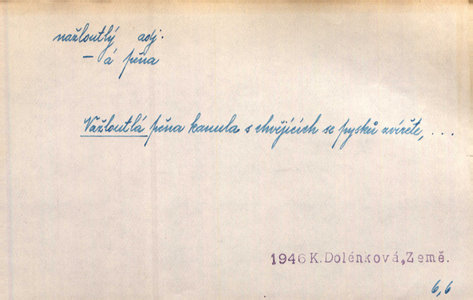 nažloutlý adj.
- á pěna
Nažloutlá pěna kanula s chvějících se pysků zvířete, ...
1946 K. Dolénková, Země.
6,6